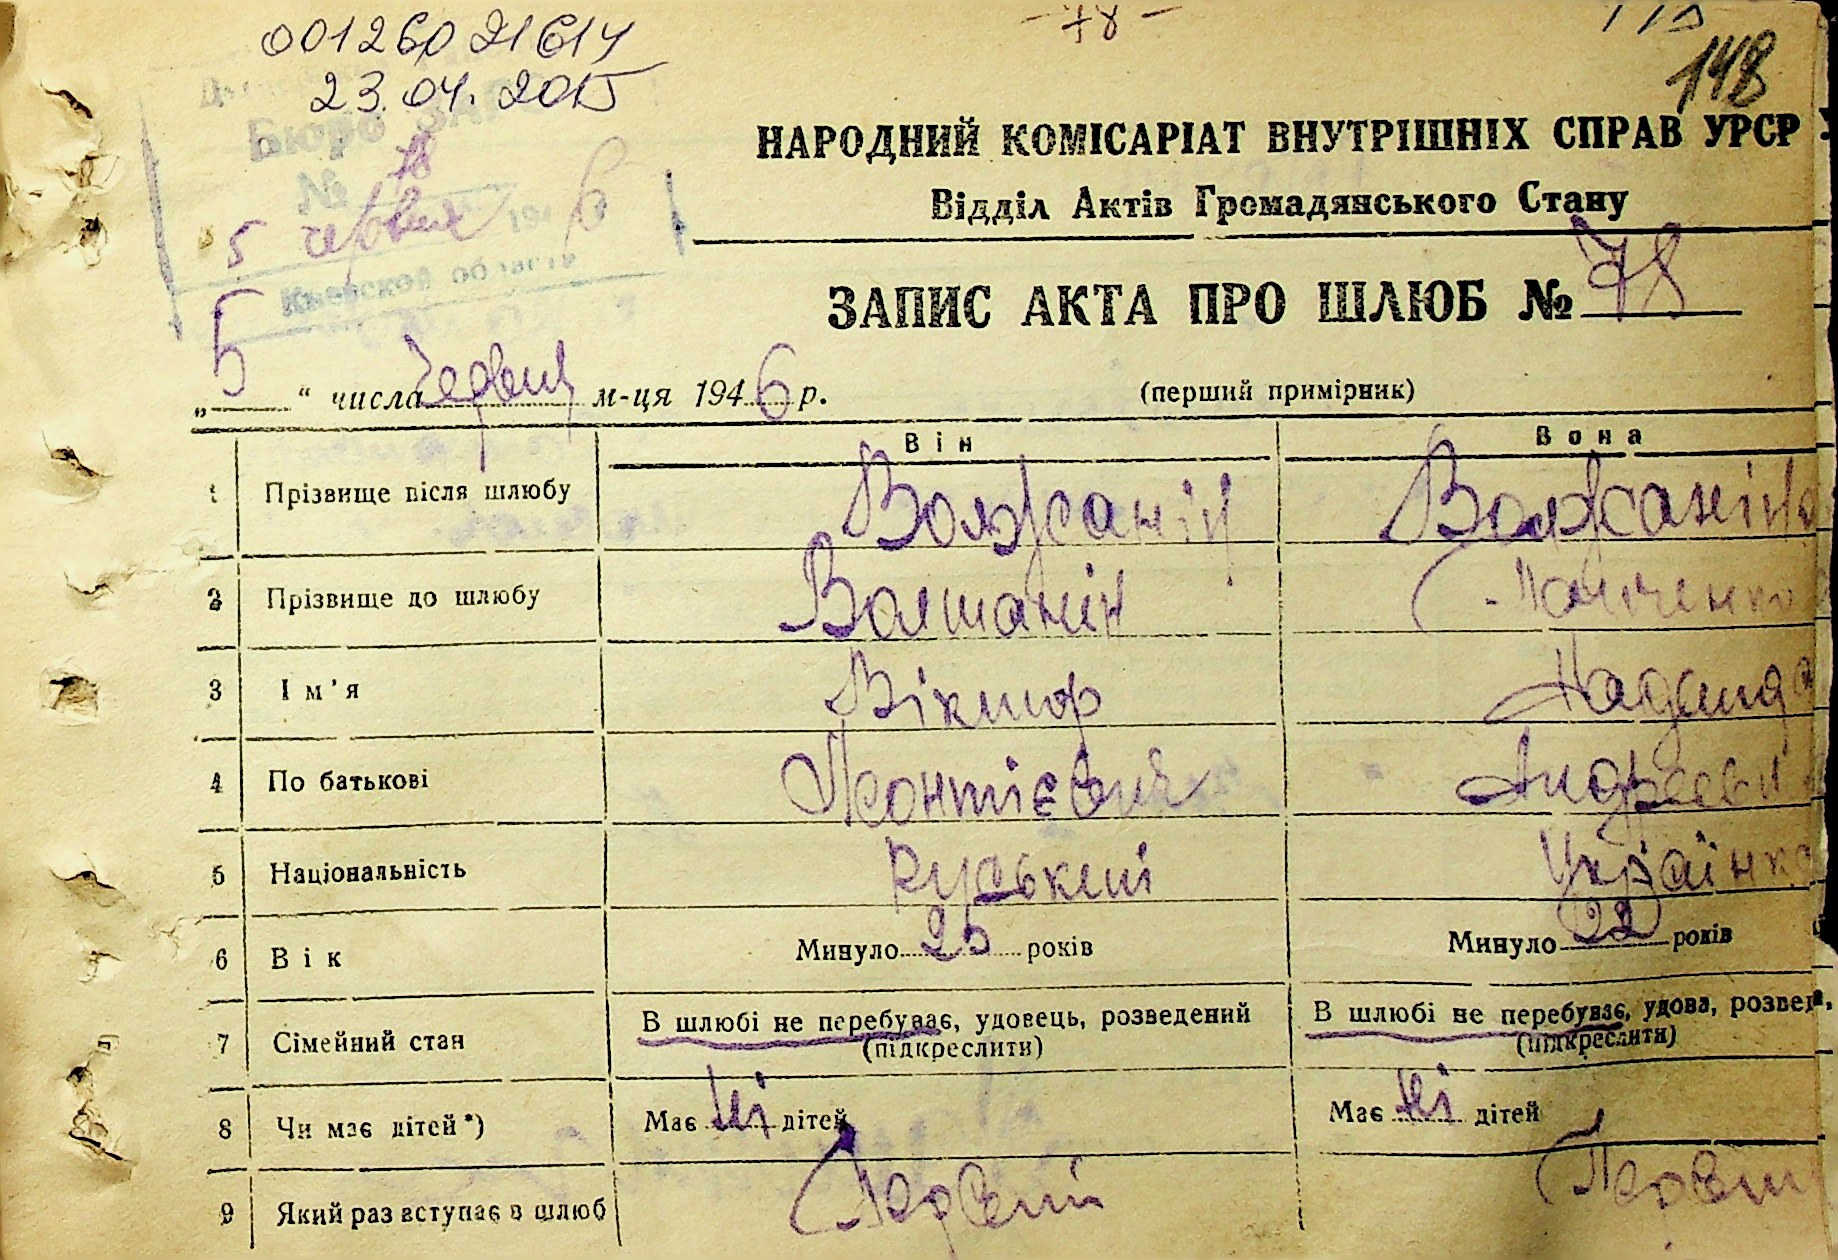 00126021614
23.04.2015
- 78 -
148
Бюро ЗАГС
№ 78
5 червня 194 6
Киевской области
НАРОДНИЙ КОМІСАРІАТ ВНУТРІШНІХ СПРАВ УРСР
Відділ Актів Громадянського Стану
ЗАПИС АКТА ПРО ШЛЮБ № 78
„ 5 “ числа Червня м-ця 1946 р.
(перший примірник)
Він Вона
1 Прізвище після шлюбу Волжанін Волжаніна
2 Прізвище до шлюбу Волжанін Панченко
3 Ім'я Віктор
4 По батькові Леонтієвич Андреевн
5 Національність Руський Українка
6 Вік Минуло 25 років Минуло 22 років
7 Сімейний стан В шлюбі не перебуває, удовець, розведений В шлюбі не перебуває, удова, розвед.,
(підкреслити) (підкреслити)
8 Чи має дітей*) Має ні дітей Має ні дітей
9 Який раз вступає в шлюб Первий Первий